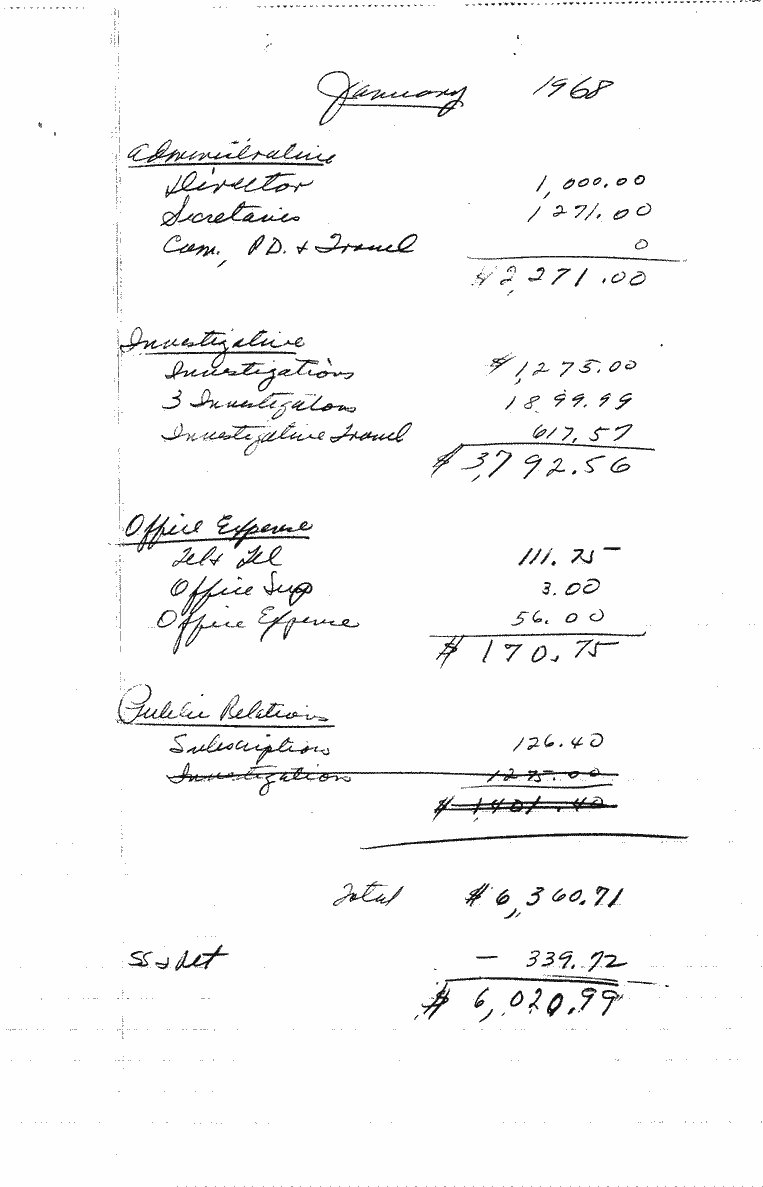 January 1968
Administrative
Director 1,000.00
Secretaries 1271.00
Com., P.D. & Travel 0
$2,271.00
Investigative
Investigations $1,275.00
3 Investigators 1899.99
Investigative Travel 617.57
$3,792.56
Office Expense
Tel & Tel 111.75
Office Sup 3.00
Office Expense 56.00
$170.75
Public Relations
Subscriptions 126.40
Investigations 1275.00
$1,401.40
Total $6,360.71
SS & Ret - 339.72
$6,020.99